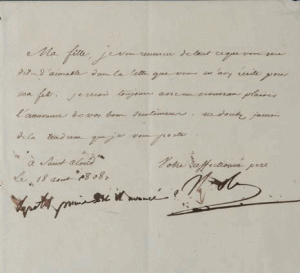 Ma fille, je vous remercie de tout ce que vous me
dites d'aimable dans la lettre que vous m'avez écrite pour
ma fête. je reçois toujours avec un nouveau plaisir
l'assurance de vos bons sentimens. ne doutez jamais
de la tendresse que je vous porte
à Saint Cloud
Le 18 aout 1808.
Votre affectionné père